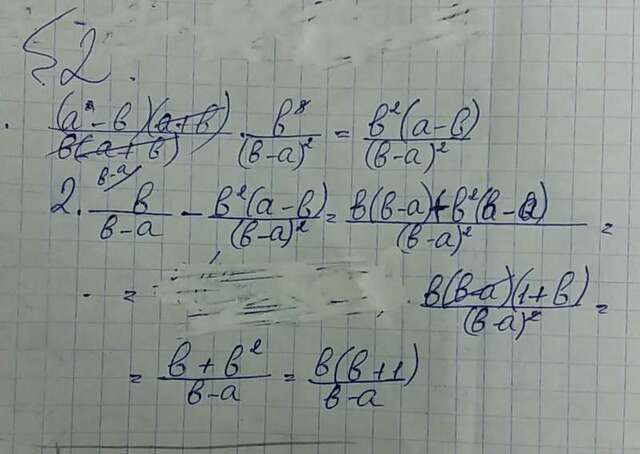 §2.
(a - b)(a+b)/b(a+b) · b^8/(b-a)^2 = b^2(a-b)/(b-a)^2
2. b/b-a - b^2(a-b)/(b-a)^2 = b(b-a)+b^2(b-a)/(b-a)^2 =
= b(b-a)(1+b)/(b-a)^2 =
= b+b^2/b-a = b(b+1)/b-a